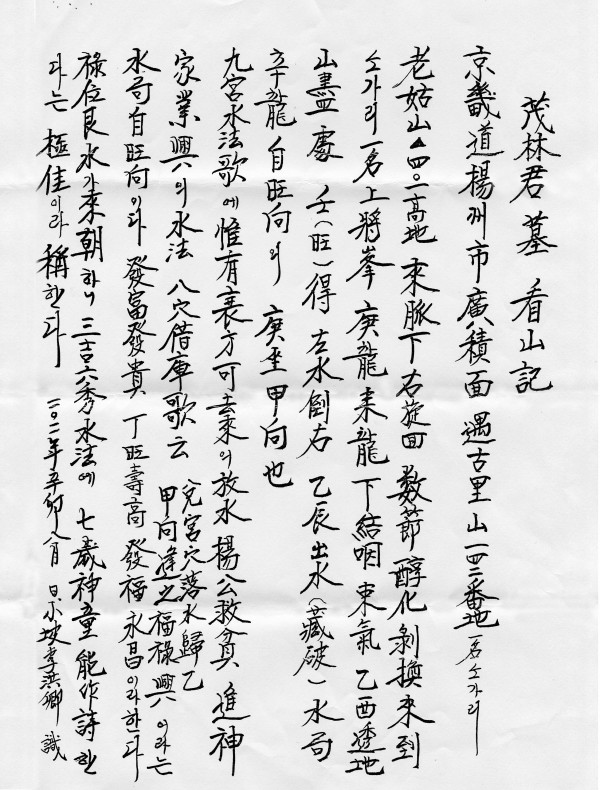 茂林君墓 看山記
京畿道楊州市廣積面 遇古里山一四二番地 一名소가리
老姑山▲四〇一高地 來脈下右旋回 數節 醇化剝換來到
소가리 一名上將峯 庚龍來龍下結咽束氣 乙酉透地
山盡處 壬(旺)得 左水倒右 乙辰出水(藏破) 水局
辛龍自旺向의 庚坐甲向也
九宮水法歌에 惟有衰方可去來의 放水 楊公救貧 進神
家業興의 水法 八穴借庫歌云 兌宮穴落水歸乙
甲向逢之福祿興 이라는
水局自旺向이다 發富發貴 丁旺壽高 發福永昌이라한다
祿位艮水가來朝하니 三吉六秀水法에 七歲神童能作詩한
다는 極佳이라 稱한다 二〇一一年辛卯八月 日 小坡 李洪卿 識